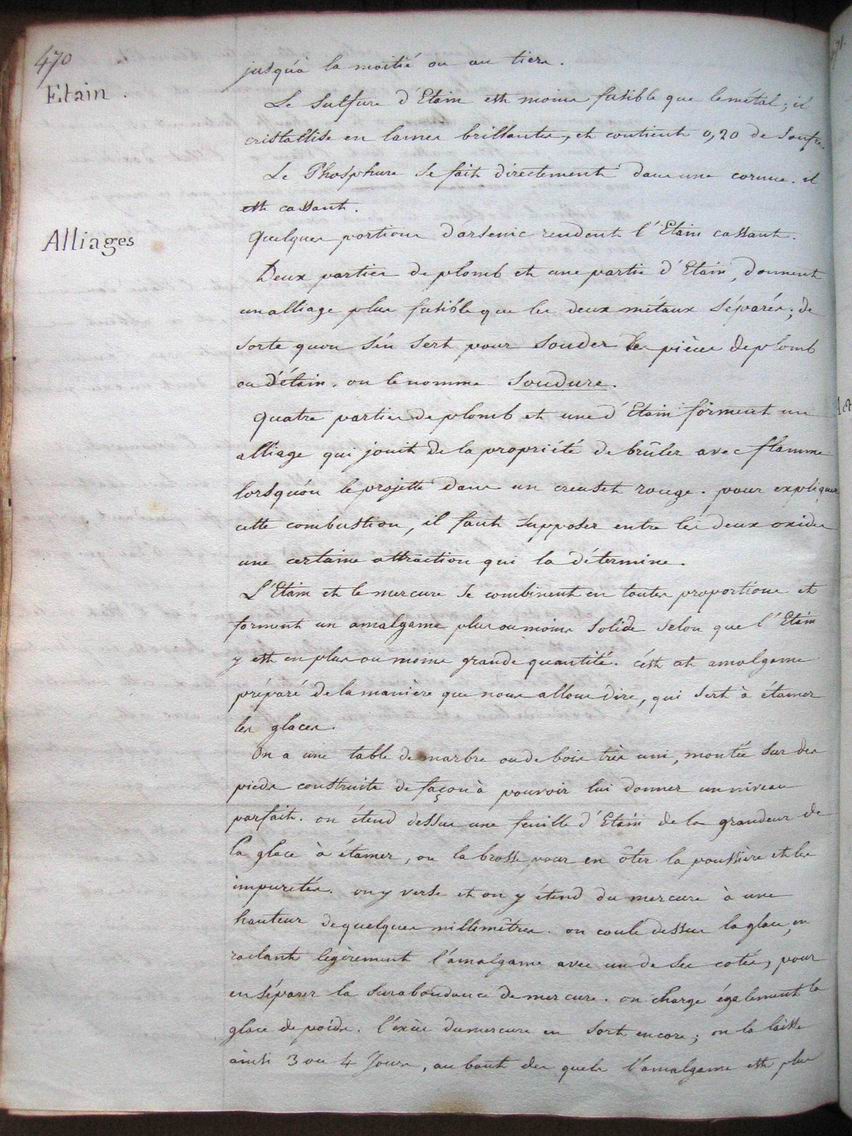 470
Etain.
jusqu'à la moitié ou au tiers.
Le sulfure d'Etain est moins fusible que le métal; il
cristallise en lames brillantes, et contient 0,20 de soufre.
Le Phosphure se fait directement dans une cornue. il
est cassant.
Alliages
Quelques portions d'arsenic rendent l'Etain cassant.
Deux parties de plomb et une partie d'Etain, donnent
un alliage plus fusible que les deux métaux séparés; de
sorte qu'on s'en sert pour souder les pièces de plomb
ou d'étain. on le nomme soudure.
Quatre parties de plomb et une d'Etain forment un
alliage qui jouit de la propriété de brûler avec flamme
lorsqu'on le projette dans un creuset rouge. pour expliquer
cette combustion, il faut supposer entre les deux oxides
une certaine attraction qui la détermine.
L'Etain et le mercure se combinent en toutes proportions et
forment un amalgame plus ou moins solide selon que l'Etain
y est en plus ou moins grande quantité. c'est cet amalgame
préparé de la maniere que nous allons dire, qui sert à étamer
les glaces.
On a une table de marbre ou de bois très uni, montée sur des
pieds construits de façon à pouvoir lui donner un niveau
parfait. on étend dessus une feuille d'Etain de la grandeur de
la glace à étamer, on la brosse pour en ôter la poussière et les
impuretés. on y verse et on y étend du mercure à une
hauteur de quelques millimètres. on coule dessus la glace, en
raclant legèrement l'amalgame avec un de ses cotés, pour
en séparer la surabondance de mercure. on charge également la
glace de poids. l'excès du mercure en sort encore; on la laisse
ainsi 3 ou 4 jours, au bout des quels l'amalgame est plus